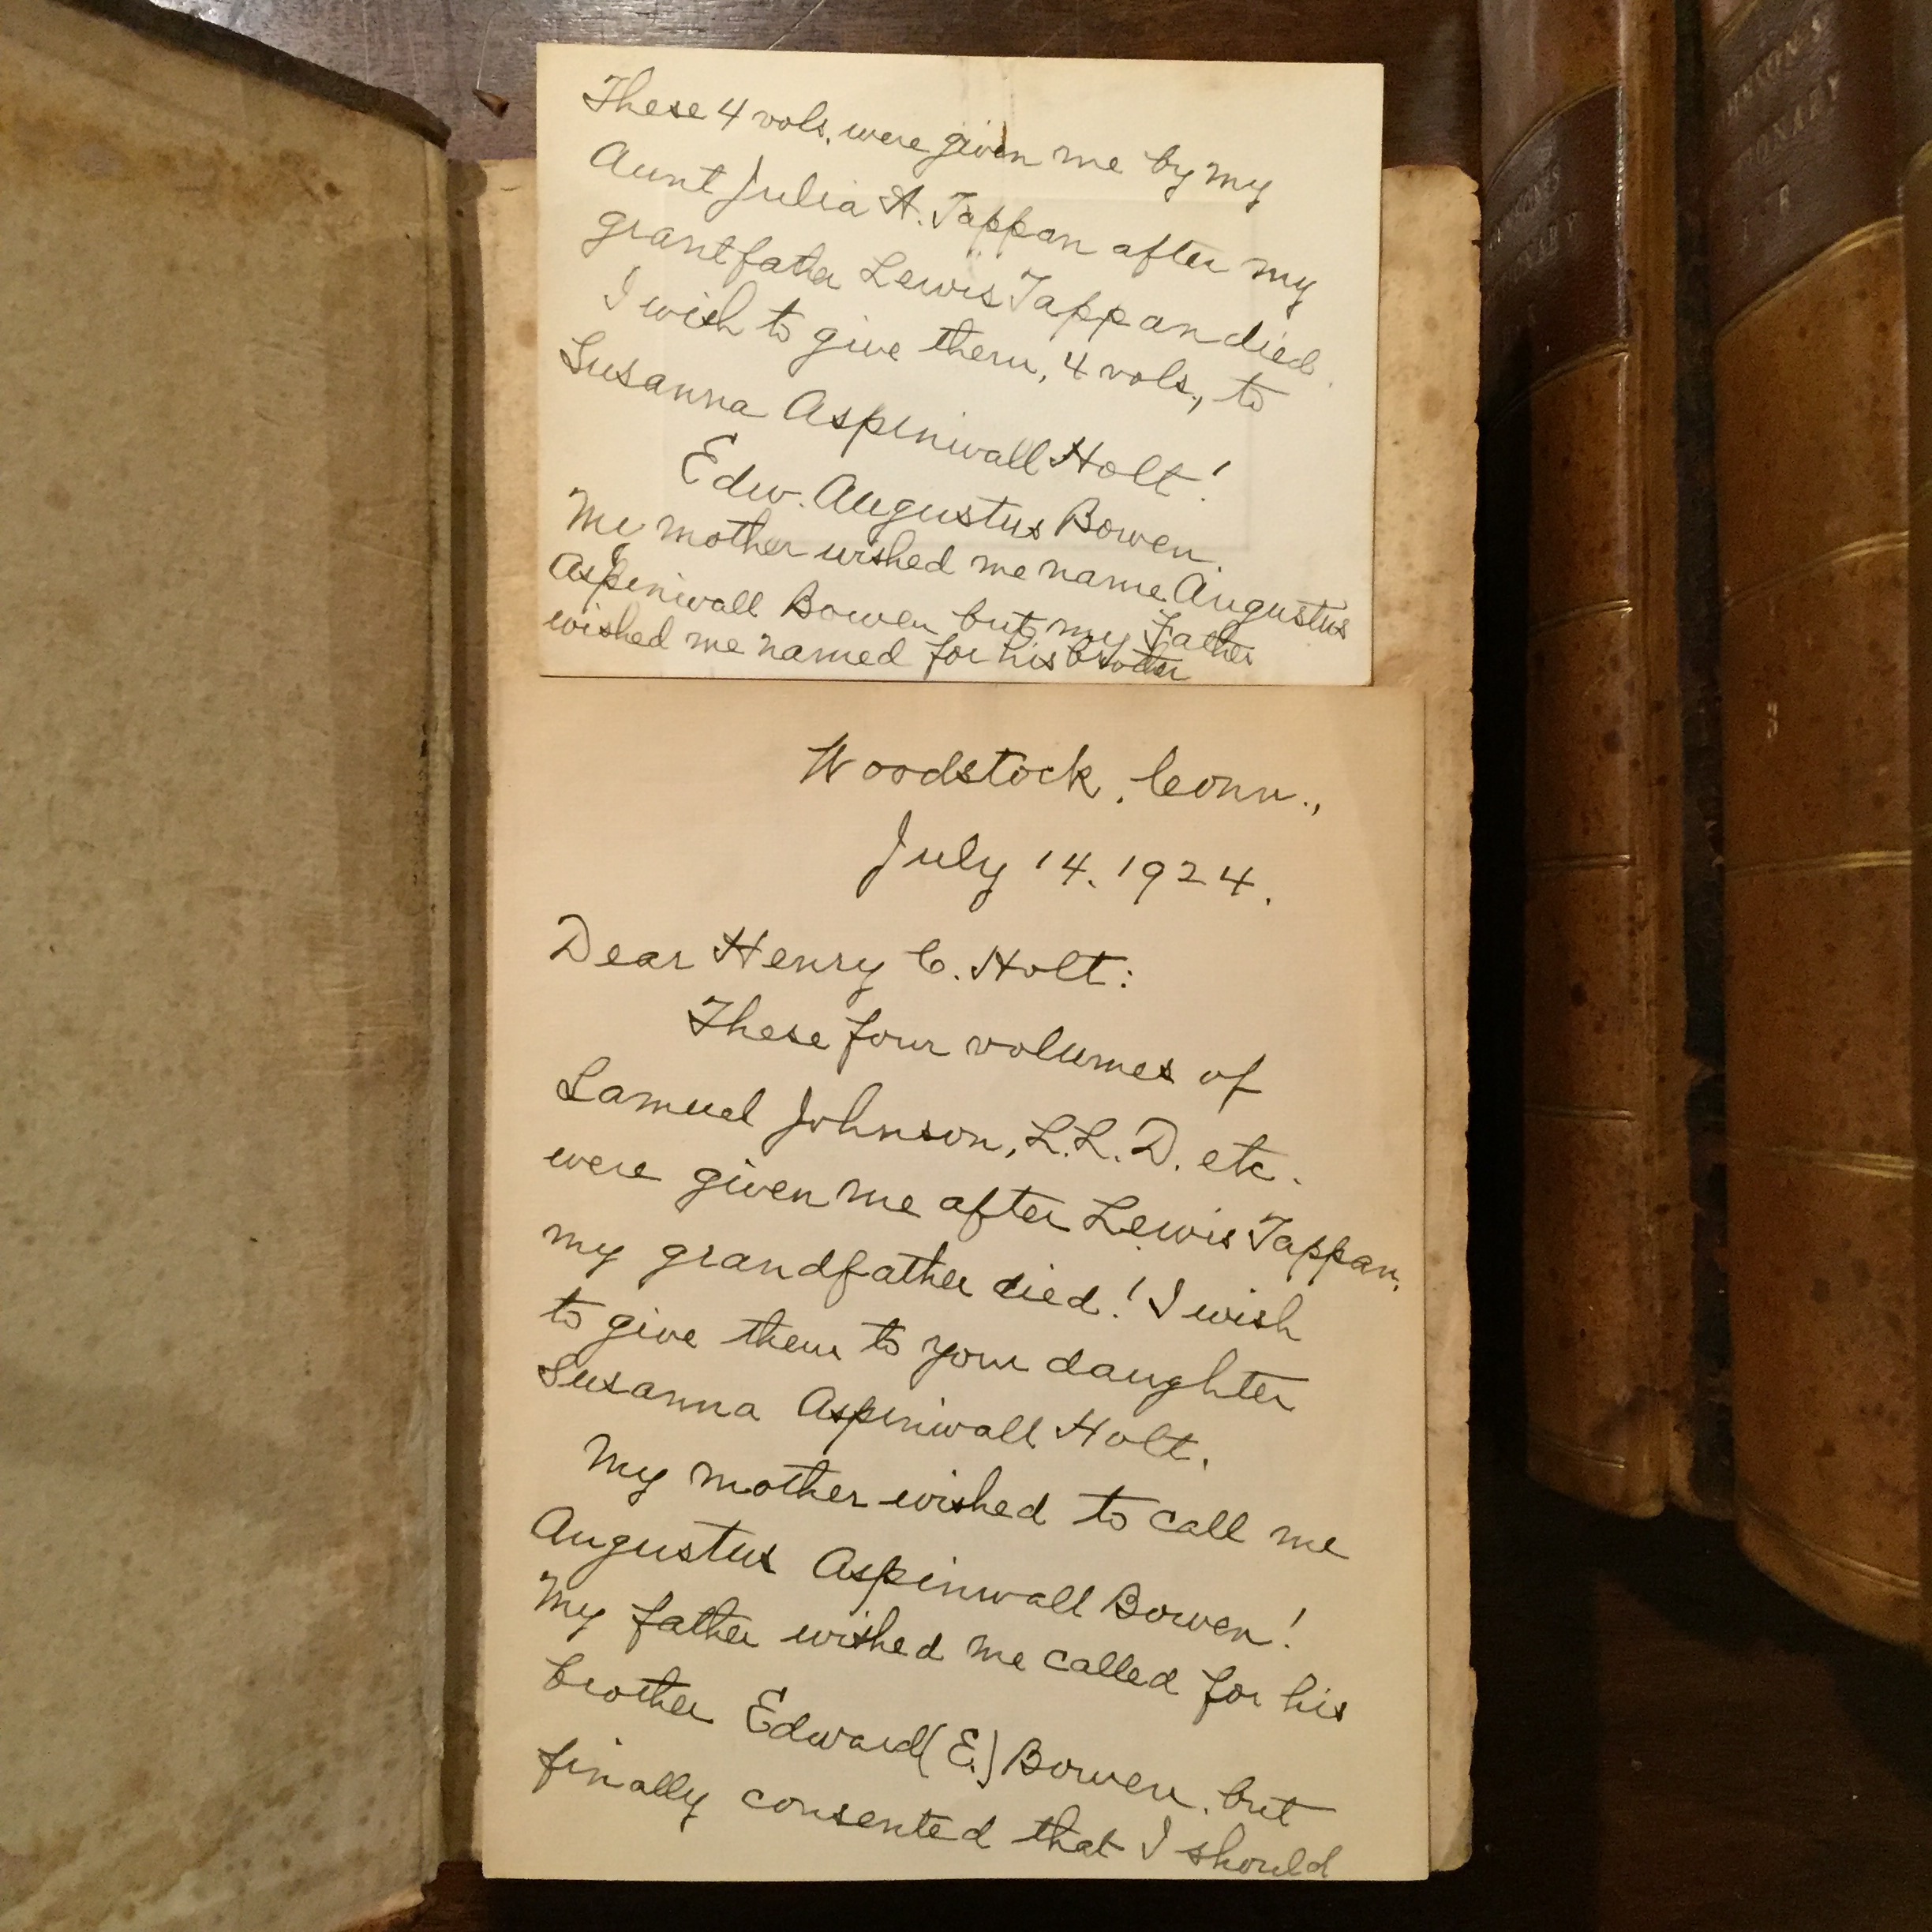 These 4 vols. were given me by my
Aunt Julia A. Tappan after my
grantfather Lewis Tappan died.
I wish to give them, 4 vols., to
Susanna Aspinwall Holt!
Edw. Augustus Bowen.
My mother wished me name Augustus
Aspinwall Bowen but my Father
wished me named for his brother
Woodstock, Conn.,
July 14, 1924.
Dear Henry C. Holt:
These four volumes of
Samuel Johnson, L.L.D. etc.
were given me after Lewis Tappan,
my grandfather died! I wish
to give them to your daughter
Susanna Aspinwall Holt.
My mother wished to call me
Augustus Aspinwall Bowen!
My father wished me called for his
brother Edward (E.) Bowen, but
finally consented that I should
DICTIONARY
3